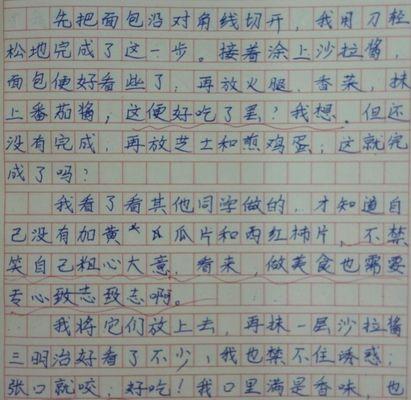 先把面包沿对角线切开，我用刀轻
松地完成了这一步。接着涂上沙拉酱，
面包便好看些了，再放火腿、香菜，抹
上番茄酱，这便好吃了罢？我想。但还
没有完成，再放芝士和煎鸡蛋；这就完
成了吗？
我看了看其他同学做的，才知道自
己没有加黄瓜片和西红柿片，不禁
笑自己粗心大意，看来，做美食也需要
专心致志致志啊。
我将它们放上去，再抹一层沙拉酱
三明治好看了不少，我也禁不住诱惑，
张口就咬，好吃！我口里满是香味，也